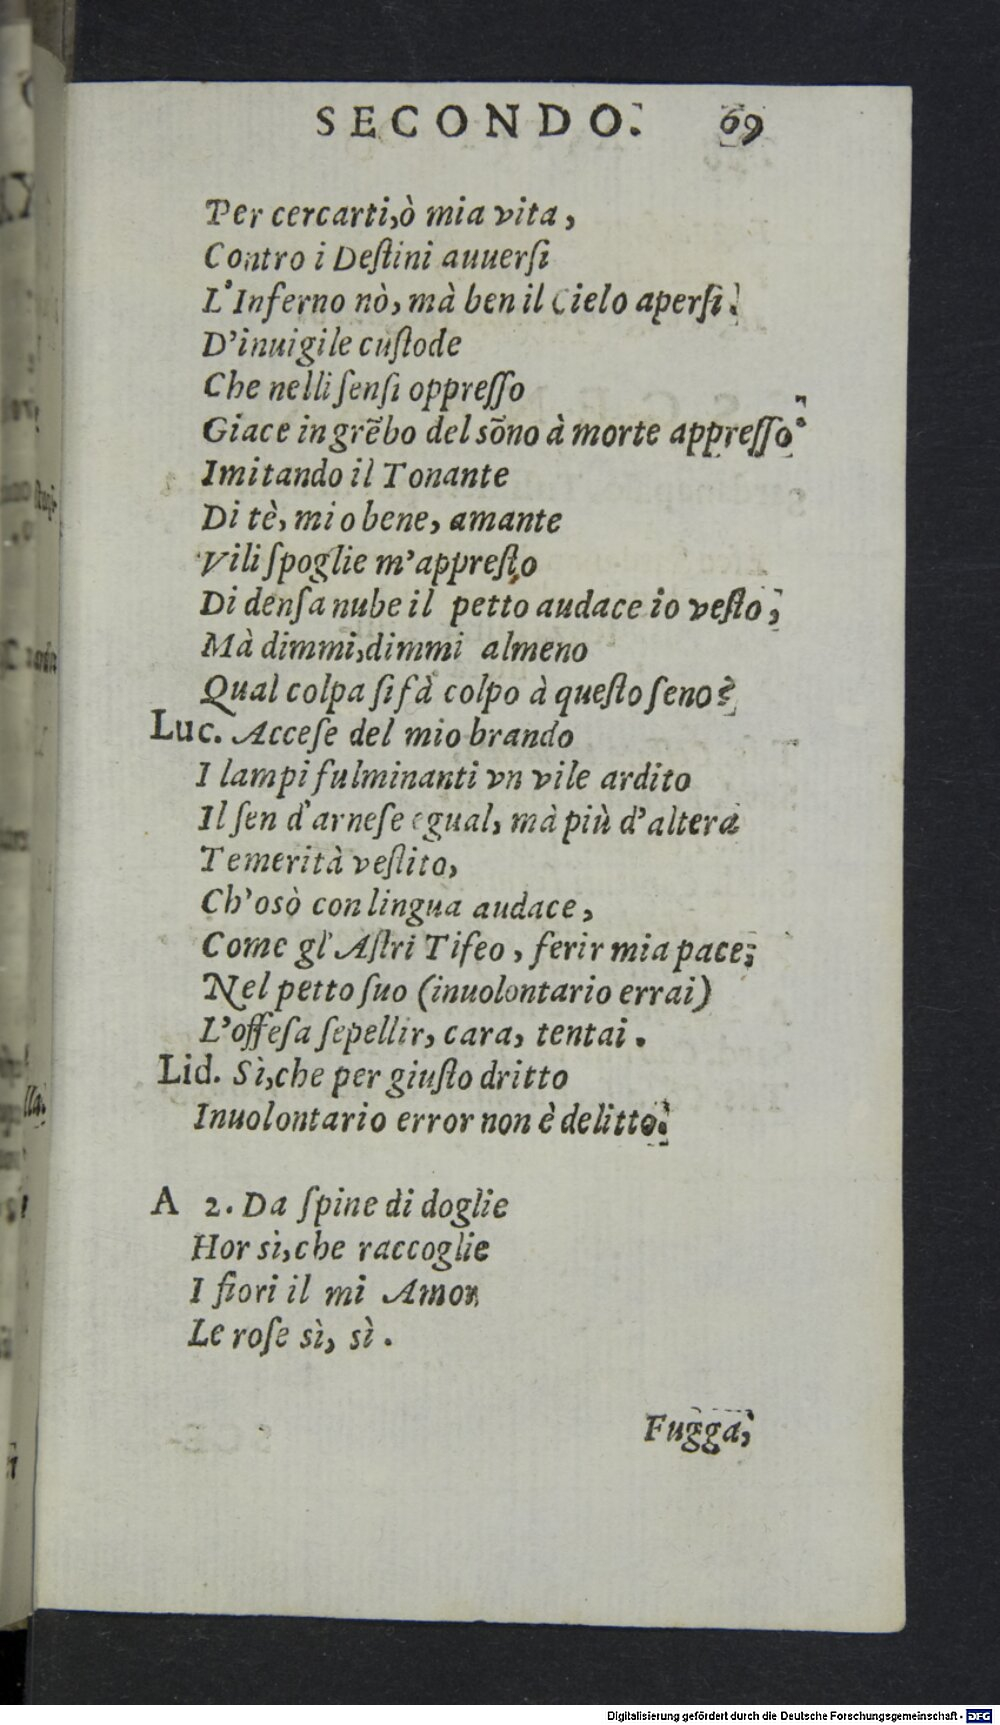 SECONDO. 69
Per cercarti, ò mia vita,
Contro i Deſtini auuerſi
L'Inferno nò, mà ben il Cielo aperſi.
D'inuigile cuſtode
Che nelli ſenſi oppreſſo
Giace in grẽbo del sõno à morte appreſſo.
Imitando il Tonante
Di tè, mio bene, amante
Vili ſpoglie m'appreſto
Di denſa nube il petto audace io veſto;
Mà dimmi, dimmi almeno
Qual colpa ſi fà colpo à queſto ſeno?
Luc. Acceſe del mio brando
I lampi fulminanti vn vile ardito
Il ſen d'arneſe egual, mà più d'altera
Temerità veſtito,
Ch'osò con lingua audace,
Come gl'Aſtri Tifeo, ferir mia pace;
Nel petto ſuo (inuolontario errai)
L'offeſa ſepellir, cara, tentai.
Lid. Sì, che per giuſto dritto
Inuolontario error non è delitto.
A 2. Da ſpine di doglie
Hor sì, che raccoglie
I fiori il mi Amor
Le roſe sì, sì.
Fugga,
Digitalisierung gefördert durch die Deutsche Forschungsgemeinschaft - DFG